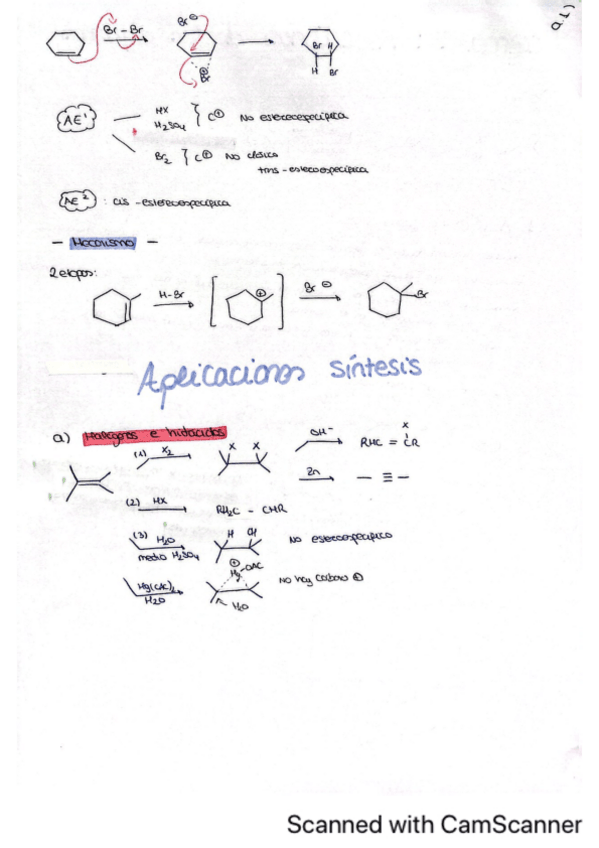 Br⊖
Br – Br
⊕
Br
Br H
H Br
AE¹
HX
H₂SO₄ } C⊕ No estereoespecífica
Br₂ } C⊕ No clásico
trans - estereoespecífica
AE² : cis - estereoespecífica
— Mecanismo —
2 etapas:
H-Br
⊕
Br ⊖
Br
Aplicaciones síntesis
a) Halógenos e hidrácidos
(1) X₂
X X
OH⁻
X
RHC = CR
Zn
— ≡ —
(2) HX
RH₂C - CHR
(3) H₂O
medio H₂SO₄
H OH
No estereoespecífico
Hg(OAc)₂
H₂O
⊕
Hg-OAc
H₂O
No hay carbono ⊕
Scanned with CamScanner